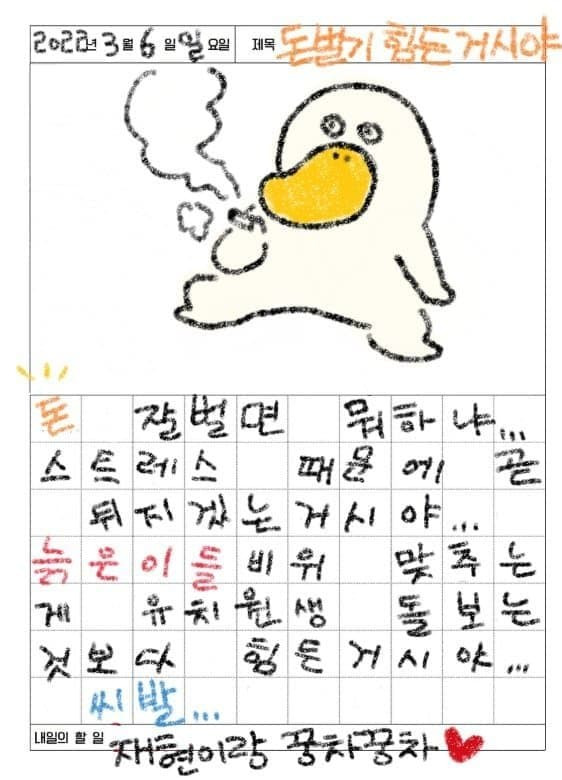 2022년 3월 6일 일요일 제목 돈벌기 힘든거시야
돈 잘벌면 뭐하냐...
스트레스 때문에 곧
뒤지겠는거시야...
늙은이들비위 맞추는
게 유치원생 돌보는
것보다 힘든거시야...
씬발...
내일의 할 일 재현이랑 꿍차꿍차